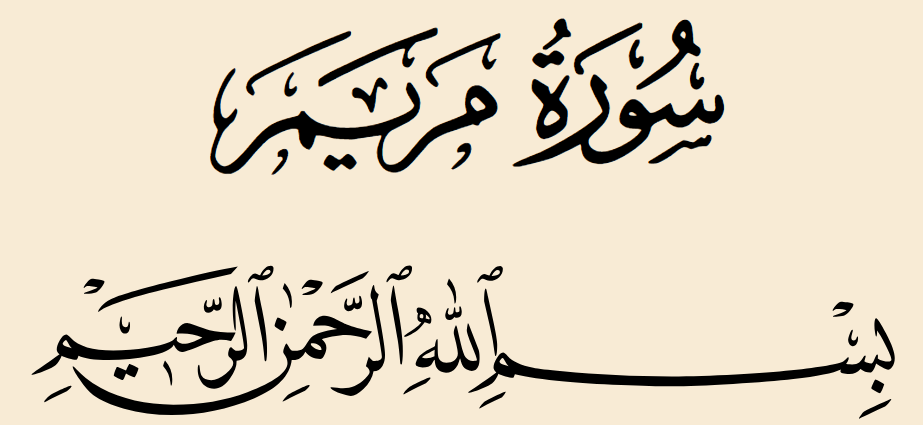 سُورَةُ مَرْيَمَ
بِسْمِ ٱللَّهِ ٱلرَّحْمَٰنِ ٱلرَّحِيمِ